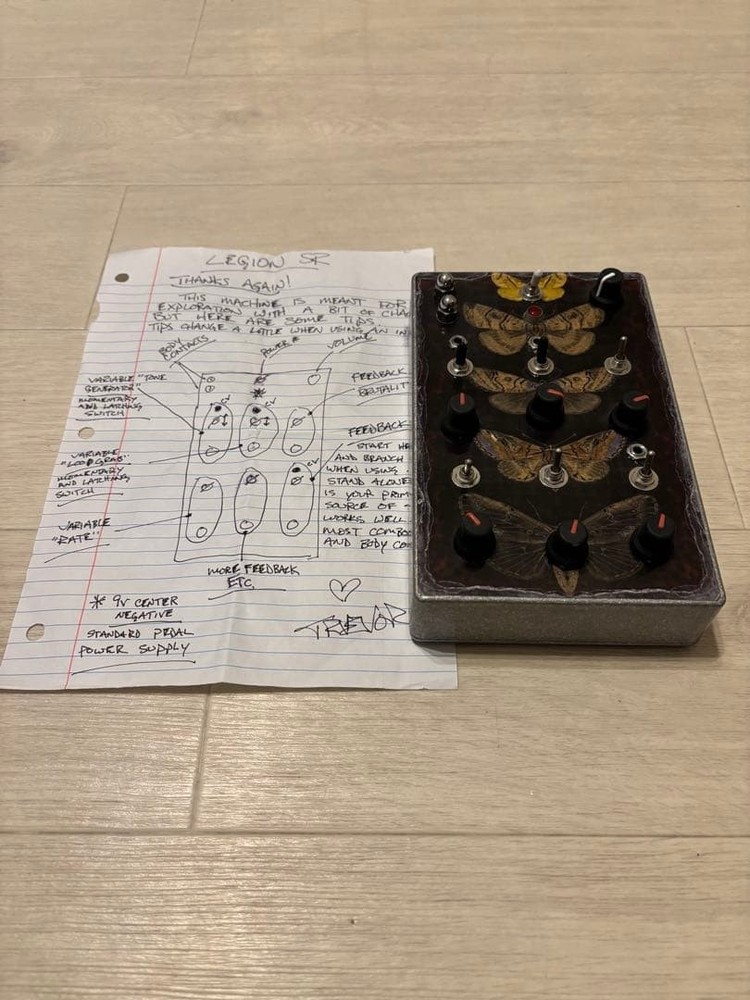 LEGION SR
THANKS AGAIN!
THIS MACHINE IS MEANT FOR
EXPLORATION WITH A BIT OF CHA
BUT HERE ARE SOME TIPS.
TIPS CHANGE A LITTLE WHEN USING AN IN
BODY
CONTACTS
POWER
VOLUME
VARIABLE "TONE
GENERATOR"
MOMENTARY
AND LATCHING
SWITCH
FEEDBACK
BRUTALIT
CV
CV
VARIABLE
"LOOP GRAB"
MOMENTARY
AND LATCHING
SWITCH
CV
FEEDBACK
START HE
AND BRANCH
WHEN USING
STAND ALONE
IS YOUR PRIM
SOURCE OF
WORKS WELL
MOST COMBO
AND BODY CO
VARIABLE
"RATE"
MORE FEEDBACK
ETC
* 9V CENTER
NEGATIVE
STANDARD PEDAL
POWER SUPPLY
TREVOR